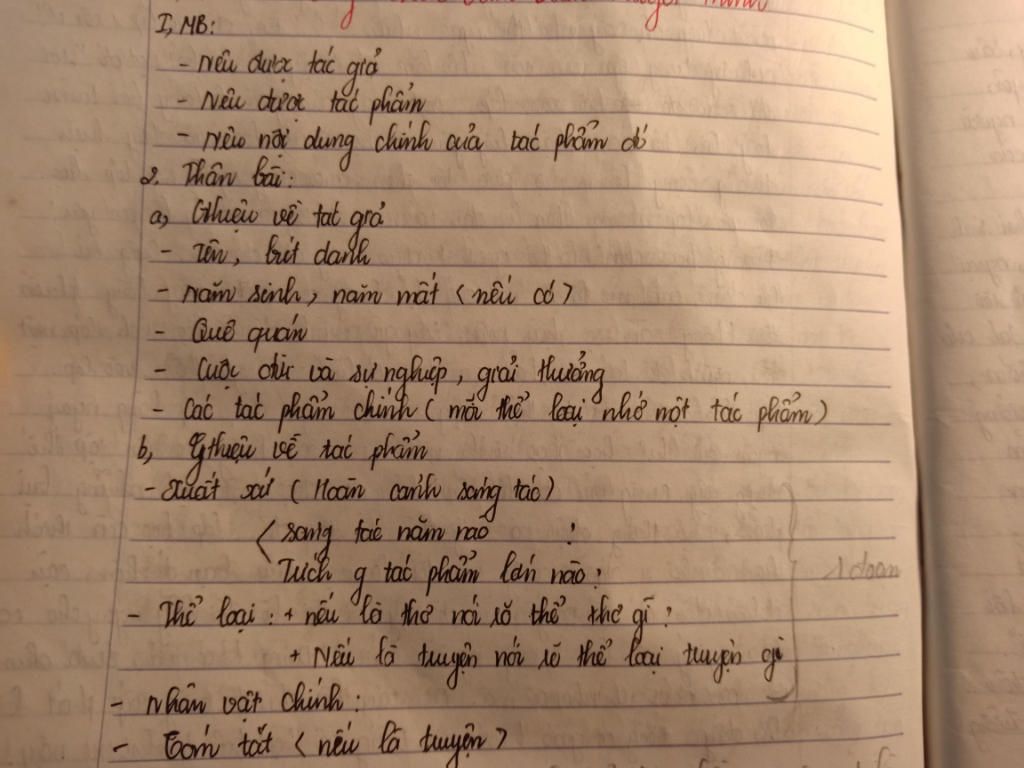 văn thuyết minh
I, MB:
- Nêu được tác giả
- Nêu được tác phẩm
- Nêu nội dung chính của tác phẩm đó
2. Thân bài:
a, Gthiệu về tác giả
- Tên, bút danh
- Năm sinh, năm mất (nếu có)
- Quê quán
- Cuộc đời và sự nghiệp, giải thưởng
- Các tác phẩm chính (mỗi thể loại nhớ một tác phẩm)
b, Gthiệu về tác phẩm
- Xuất xứ (Hoàn cảnh sáng tác)
< sáng tác năm nào ?
Trích g tác phẩm lớn nào?
1 đoạn
- Thể loại: + nếu là thơ nói rõ thể thơ gì?
+ Nếu là truyện nói rõ thể loại truyện gì
- Nhân vật chính:
- Tóm tắt (nếu là truyện)